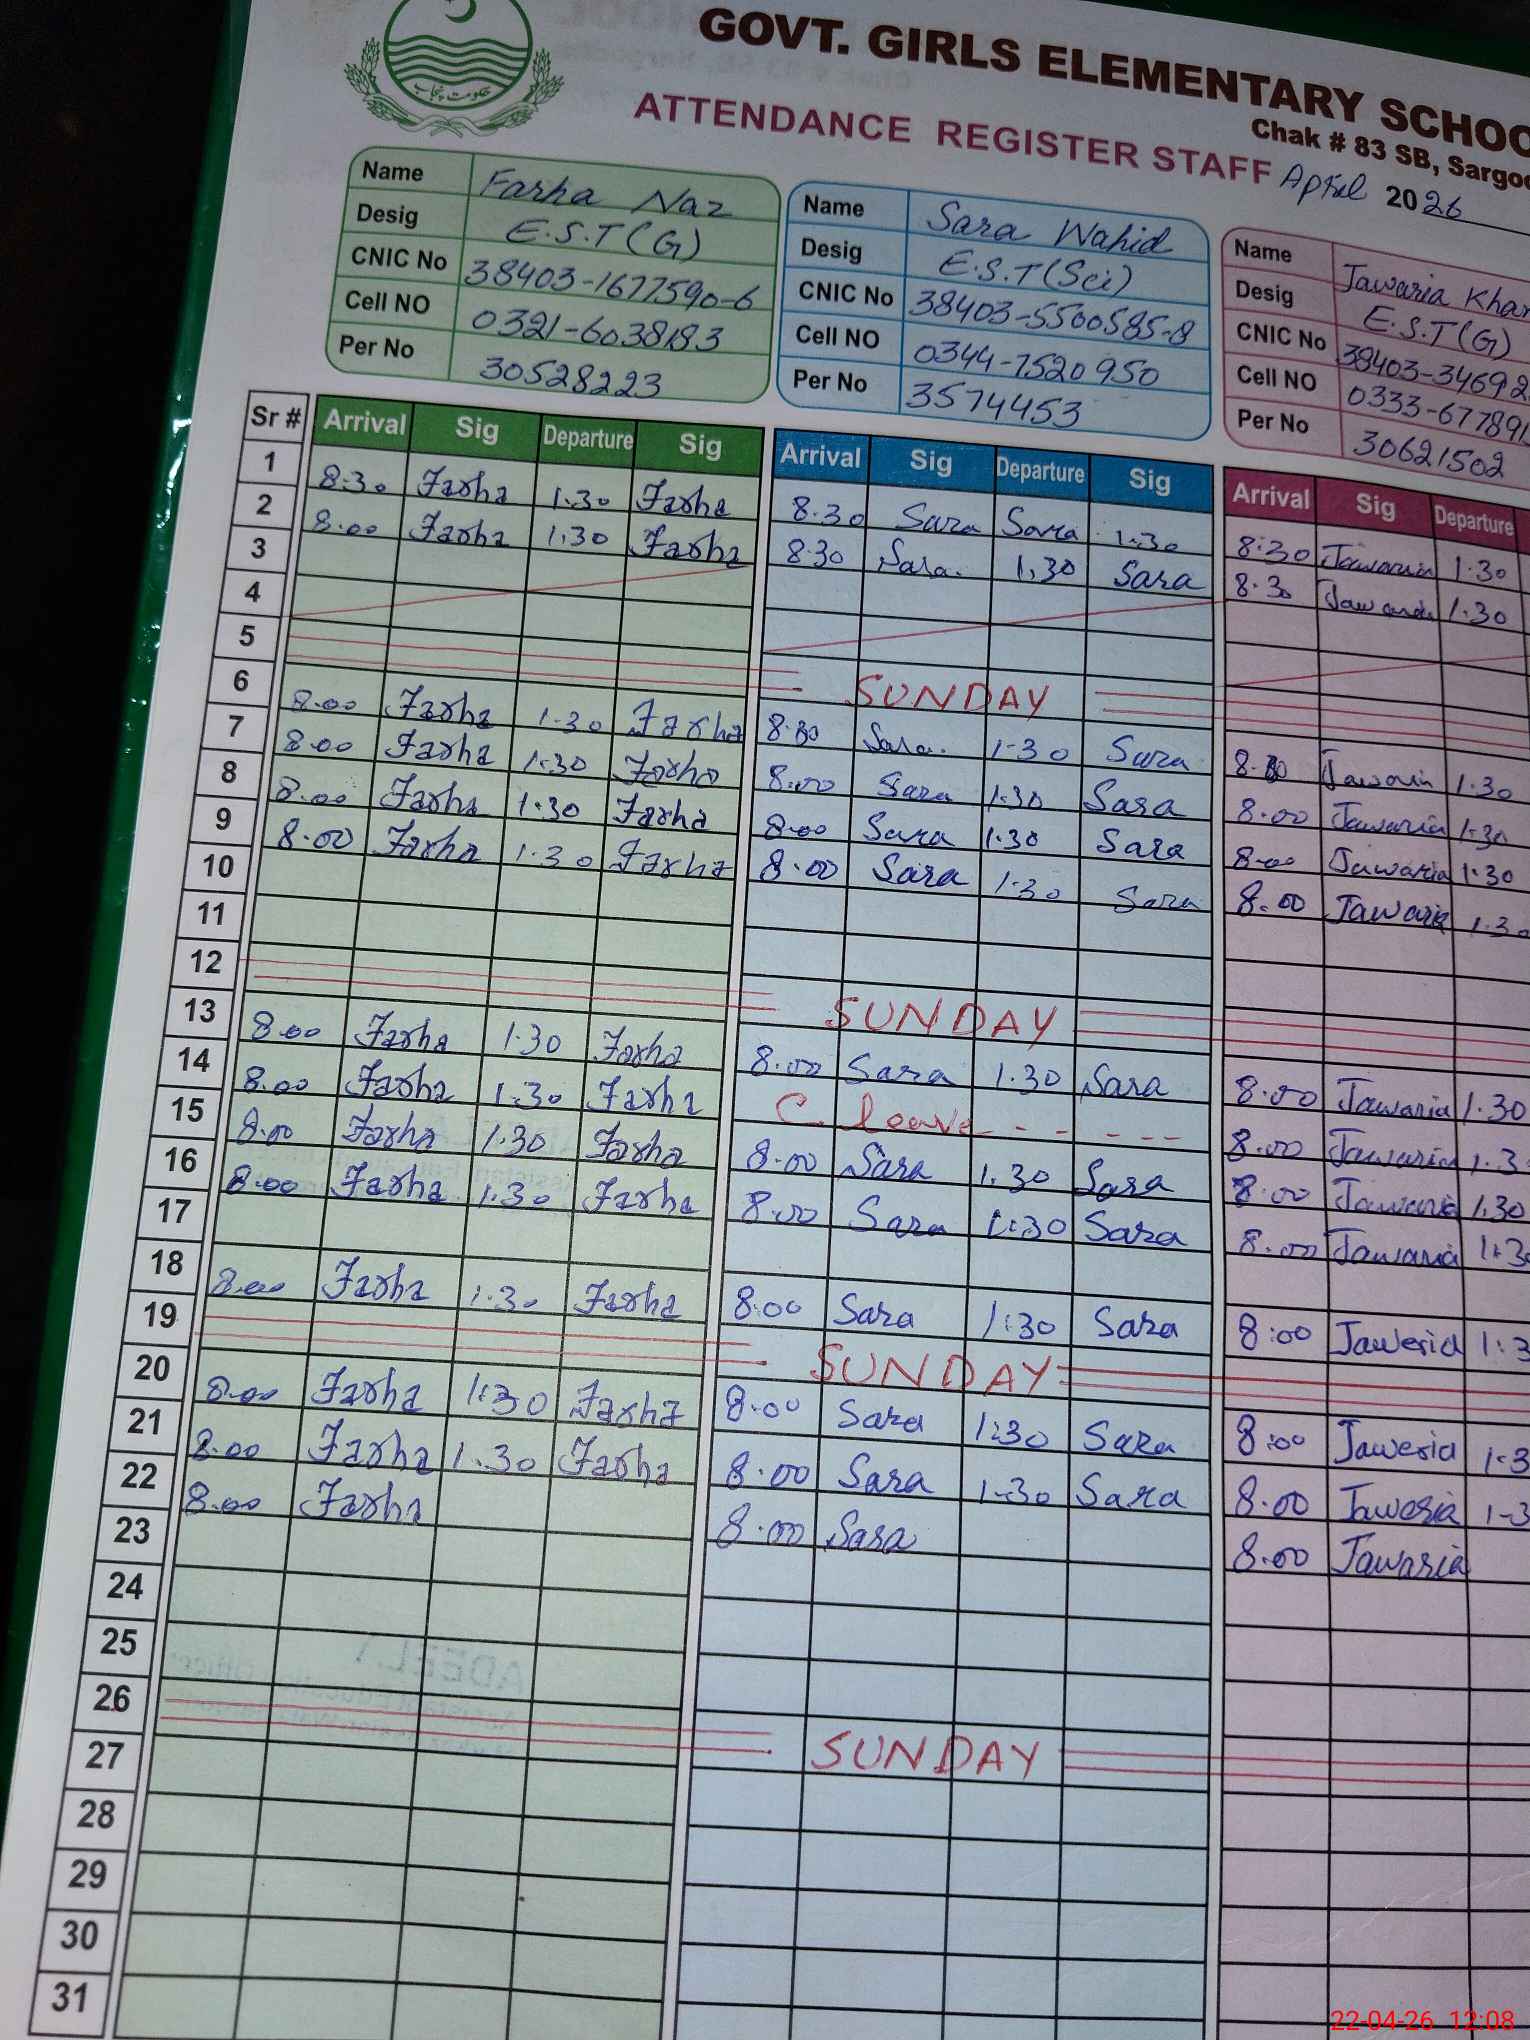 حکومت پنجاب
GOVT. GIRLS ELEMENTARY SCHOO
Chak # 83 SB, Sargo
ATTENDANCE REGISTER STAFF April 2026
Name Farha Naz
Desig E.S.T (G)
CNIC No 38403-1677590-6
Cell NO 0321-6038183
Per No 30528223
Name Sara Wahid
Desig E.S.T (Sci)
CNIC No 38403-5500585-8
Cell NO 0344-7520950
Per No 3574453
Name Jawaria Khan
Desig E.S.T (G)
CNIC No 38403-34692
Cell NO 0333-677891
Per No 30621502
Sr # Arrival Sig Departure Sig Arrival Sig Departure Sig Arrival Sig Departure
1 8.30 Farha 1.30 Farha 8.30 Sara Sara 1.30 8:30 Jawaria 1.30
2 8.00 Farha 1.30 Farha 8.30 Sara. 1.30 Sara 8.30 Jawaria 1.30
3
4
5 SUNDAY
6 8.00 Farha 1.30 Farha 8.30 Sara. 1-30 Sara Jawaria 1.30
7 8.00 Farha 1.30 Farha 8.00 Sara 1.30 Sara 8.00 Jawaria 1.30
8 8.00 Farha 1.30 Farha 8.00 Sara 1.30 Sara 8.00 Jawaria 1.30
9 8.00 Farha 1.30 Farha 8.00 Sara 1.30 Sara 8.00 Jawaria 1.30
10
11
12 SUNDAY
13 8.00 Farha 1.30 Farha 8.00 Sara 1.30 Sara 8.00 Jawaria 1.30
14 8.00 Farha 1.30 Farha C. leave - - - - - - 8.00 Jawaria 1.3
15 8.00 Farha 1.30 Farha 8.00 Sara 1.30 Sara 8.00 Jawaria 1.30
16 8.00 Farha 1.30 Farha 8.00 Sara 1:30 Sara 8.00 Jawaria 1.3
17
18 8.00 Farha 1.30 Farha 8.00 Sara 1:30 Sara 8:00 Jaweria 1:3
19 SUNDAY
20 8.00 Farha 1:30 Farha 8.00 Sara 1:30 Sara 8:00 Jaweria 1-3
21 8.00 Farha 1.30 Farha 8.00 Sara 1-30 Sara 8.00 Jaweria 1-3
22 8.00 Farha 8.00 Sara 8.00 Jawaria
23
24
25
26 SUNDAY
27
28
29
30
31
22-04-26 12:08